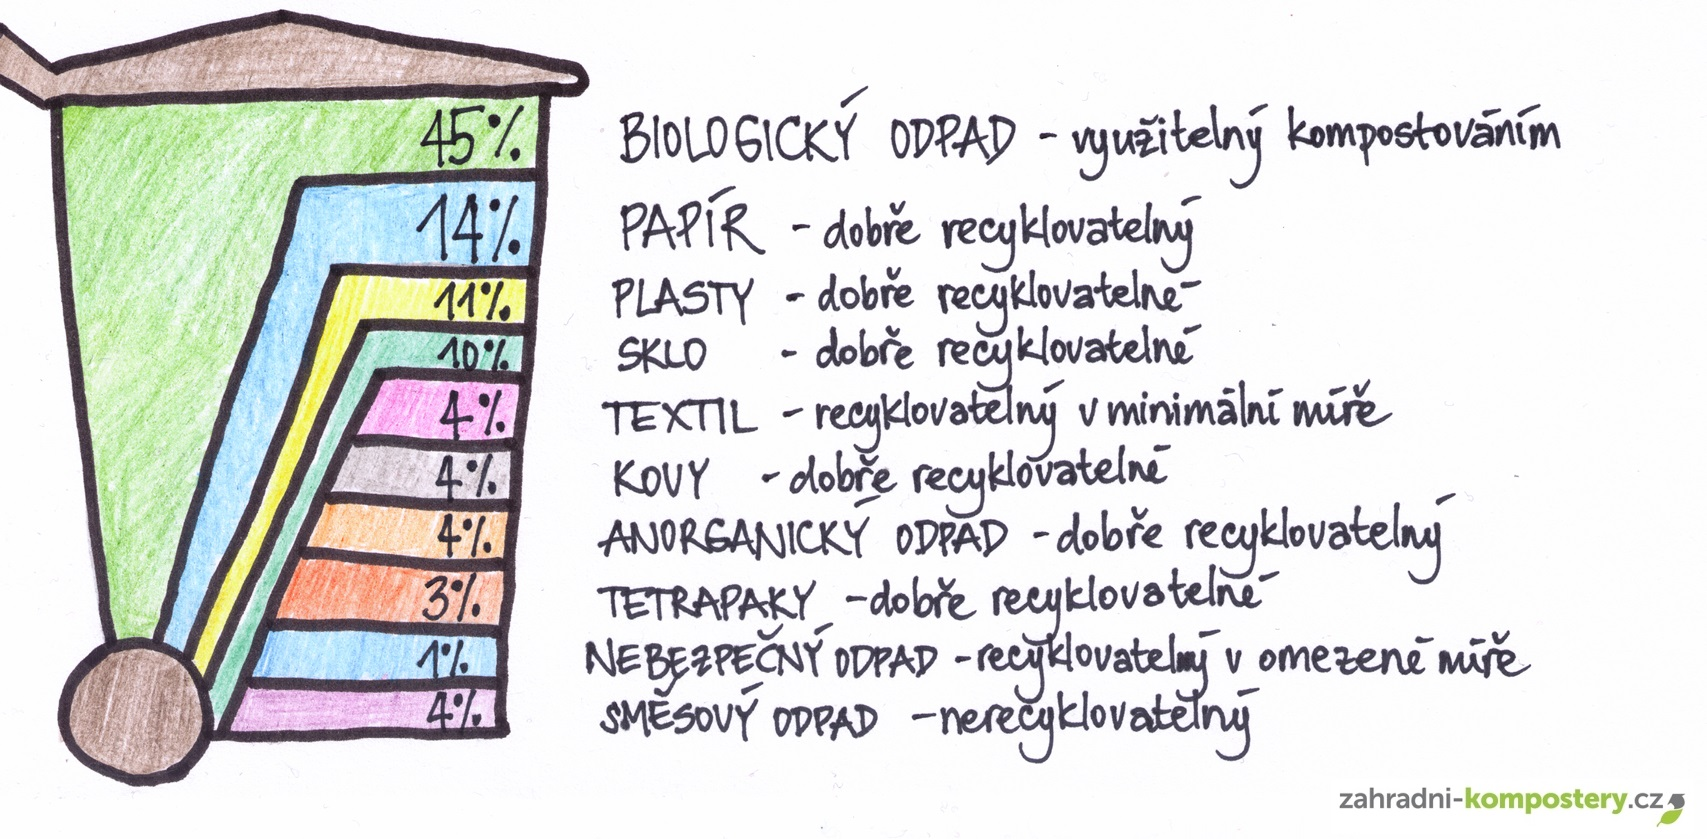 45% BIOLOGICKÝ ODPAD - využitelný kompostováním
14% PAPÍR - dobře recyklovatelný
11% PLASTY - dobře recyklovatelné
10% SKLO - dobře recyklovatelné
4% TEXTIL - recyklovatelný v minimální míře
4% KOVY - dobře recyklovatelné
4% ANORGANICKÝ ODPAD - dobře recyklovatelný
3% TETRAPAKY - dobře recyklovatelné
1% NEBEZPEČNÝ ODPAD - recyklovatelný v omezené míře
4% SMĚSOVÝ ODPAD - nerecyklovatelný
zahradni-kompostery.cz